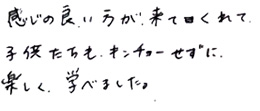 感じの良い方が、来て下くれて、
子供たちも、キンチョーせずに、
楽しく、学べました。